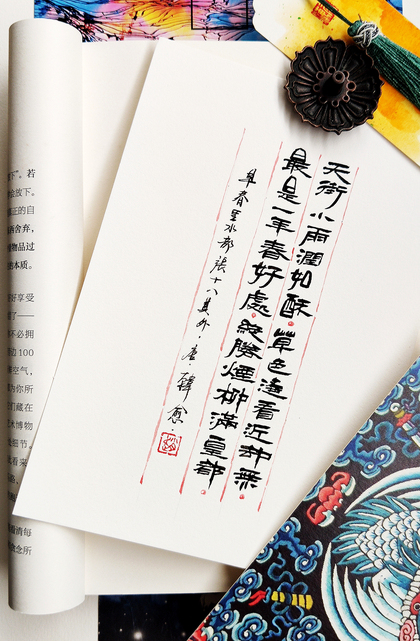 天街小雨潤如酥草色遙看近却無
最是一年春好處絕勝煙柳滿皇都
早春呈水部張十八員外·唐·韓愈·
下”。若
会放下。
正的自
西舍弃，
物品过
本质。
好享受
了——
不必拥
边100
空气，
为你所
们藏在
博物
细节。
看来
念所